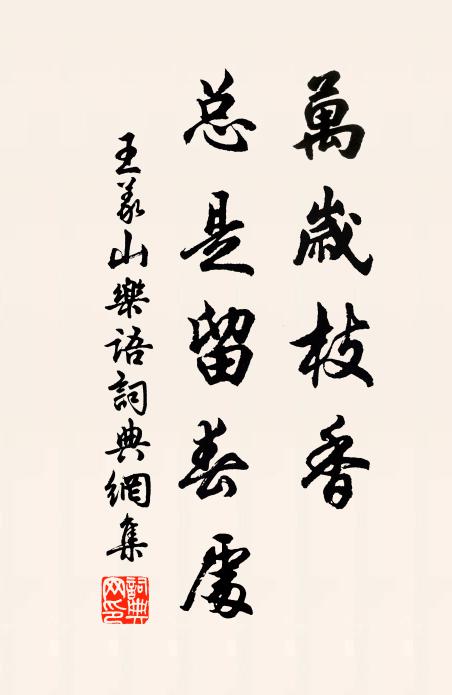 萬歲枝香
总是留春處
王義山樂語詞典網集
詞典網印